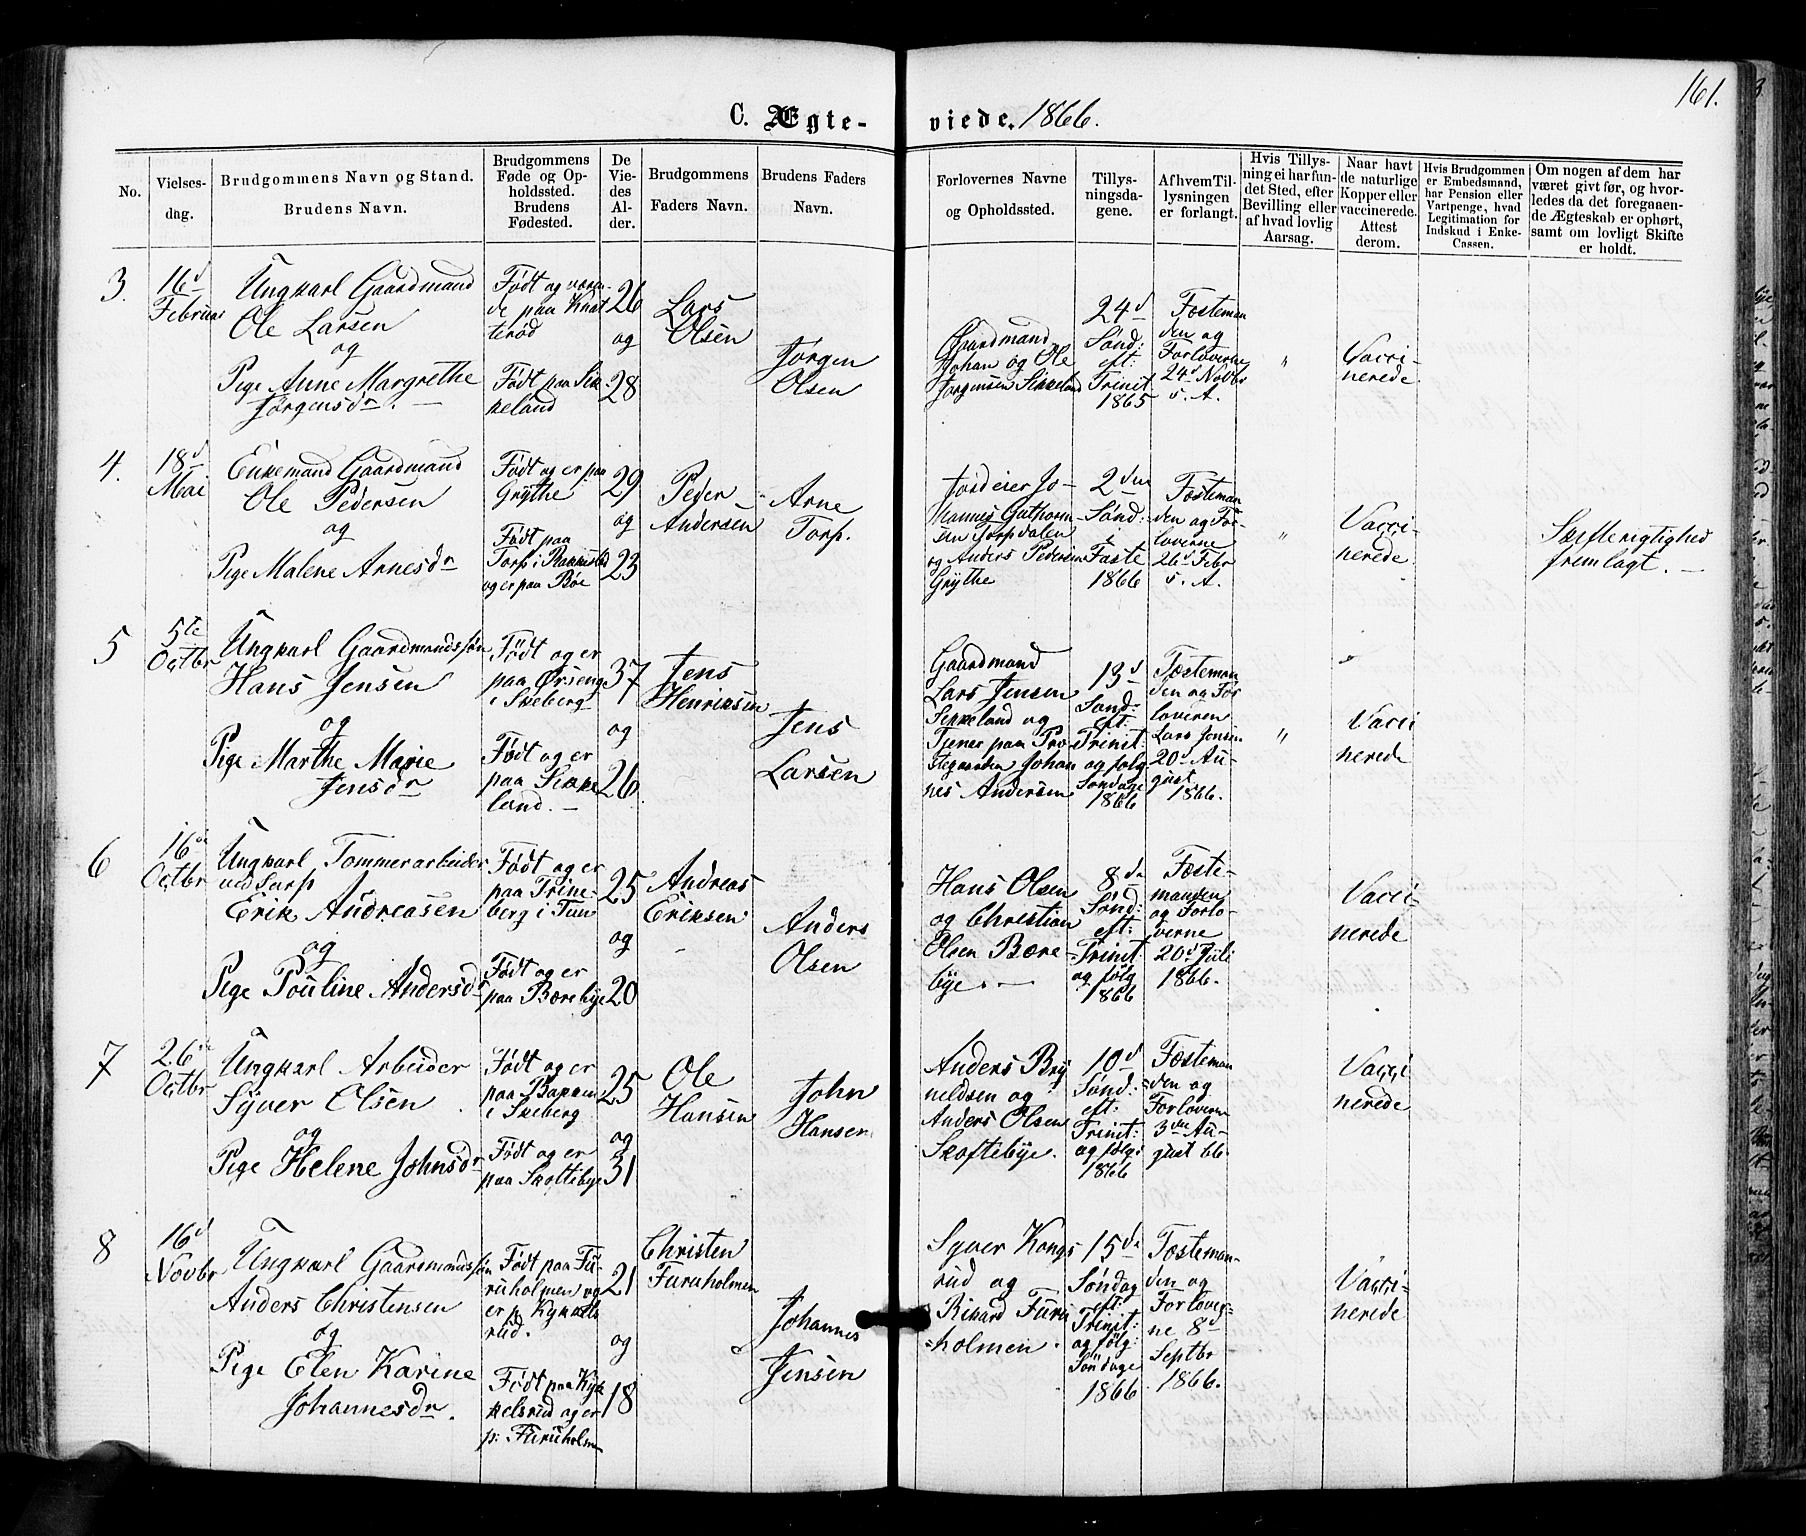 161.
C. Ægteviede. 1866.
No.
Vielsesdag.
Brudgommens Navn og Stand.
Brudens Navn.
Brudgommens
Føde og Op-
holdssted.
Brudens
Fødested.
De
Vie-
des
Al-
der.
Brudgommens
Faders Navn.
Brudens Faders
Navn.
Forlovernes Navne
og Opholdssted.
Tillys-
ningsda-
gene.
Af hvem Til-
lysningen
er forlangt.
Hvis Tillys-
ning ei har fun-
det Sted, efter
Bevilling eller
af hvad lovlig
Aarsag.
Naar havt
de naturlige
Kopper eller
vaccinerede.
Attest
derom.
Hvis Brudgommen
er Embedsmand,
har Pension eller
Vartpenge, hvad
Legitimation for
Indskud i Enke-
Cassen.
Om nogen af dem har
været givt før, og hvor-
ledes da det foregaaen-
de Ægteskab er ophørt,
samt om lovligt Skifte
er holdt.
3.
16d
Februar
Ungkarl Gaardmand
Ole Larsen
og
Pige Anne Margrethe
Jørgensdr.
Født og væren-
de paa Knat
terød
Født paa Sik-
keland
26
og
28
Lars
Olsen
Jørgen
Olsen
Gaardmand
Johan og Ole
Jørgensen Sikkeland
24d
Sønd:
eft:
Trinit
1865
Fæsteman
den og
Forloverne
24d Novbr
s. A.
"
Vacci-
nerede.
4.
18d
Mai
Enkemand Gaardmand
Ole Pedersen
og
Pige Malene Arnesdr
Født og er paa
Grythe
Født paa
Torp i Rakkestad
og er paa Bøe
29
og
23
Peder
Andersen
Arne
Torp.
Jordeier Jo-
hannes Guthorm-
sen Torpdalen
og Anders Pedersen
Grythe
2den
Sønd:
i
Faste
1866
Fæsteman-
den og For-
loverne
26d Febr
s. A.
"
Vacci-
nerede.
Skifterigtighed
fremlagt.
5
5te
Octbr
Ungkarl Gaardmandssøn
Hans Jensen
og
Pige Marthe Marie
Jensdr
Født og er
paa Ørseng
i Skeberg
Født og er
paa Sikke
land.
37
og
26
Jens
Henriksen
Jens
Larsen
Gaardmand
Lars Jensen
Sikkeland og
Tjener paa Præ-
stegaarden Johan-
nes Andersen
13d
Sønd:
eft:
Trinit:
og følg
Søndage
1866
Fæsteman
den og For
loveren
Lars Jensen
20d Au-
gust
1866.
"
Vacci
nerede
6
16de
Octbr
Ungkarl Tømmerarbeider
ved Sarp
Erik Andreasen
og
Pige Pouline Andersdr
Født og er
paa Trine-
berg i Tun
Født og er
paa Børebye
25
og
20
Andreas
Eriksen
Anders
Olsen
Hans Olsen
og Christian
Olsen Børe-
bye.
8de
Sønd:
eft:
Trinit
og følg
1866
Fæste-
manden
og Forlo-
verne
20d Juli
1866.
Vacci-
nerede
7
26de
Octbr
Ungkarl Arbeider
Syver Olsen
og
Pige Helene Johnsdr
Født og er
paa Bakken
i Skeberg
Født og er
paa Skoftebye
25
og
31
Ole
Hansen
John
Hansen
Anders Bry
neldsen og
Anders Olsen
Skoftebye.
10d
Sønd:
eft:
Trinit:
og følg:
1866
Fæsteman
den og
Forloverne
3die Au-
gust 66.
Vacci
nerede
8
16d
Novbr
Ungkarl Gaardmandssøn
Anders Christensen
og
Pige Elen Karine
Johannesdr.
Født paa Fu-
ruholmen og
er p. Kykkels
rud.
Født paa Kyk
kelsrud og er
p: Furuholmen
21
og
18
Christen
Furuholmen
Johannes
Jensen
Syver Kongs
rud og
Rikard Furu
holmen.
15de
Søndag
eft:
Trinit:
og følg:
Søndage
1866
Fæsteman-
den og
Forlover-
ne 8d
Septbr
1866.
Vacci-
nerede